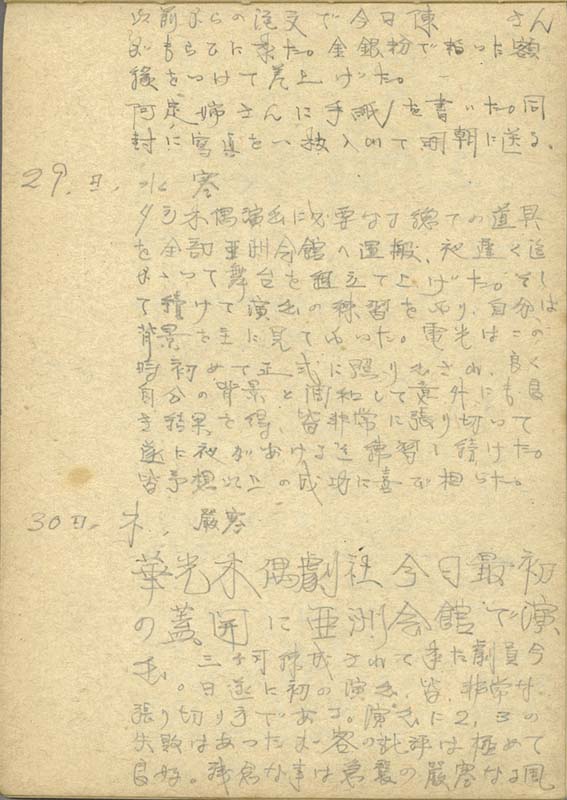 以前からの注文で今日陳　　さん
がもらひに来た。金銀粉で粧った額
縁をつけて差上げた。
阿定姉さんに手紙を書いた。同
封に寫真を一枚入れて明朝に送る。
29. 日, 水　寒
夕方木偶演出に必要なる總ての道具
を全部亜洲会館へ運搬、夜遅く迄
かゝって舞台を組立て上げた。そし
て續けて演出の練習をやり、自分は
背景を主に見てゐった。電光はこの
時初めて正式に照り出され、良く
自分の背景と調和して意外にも良
き結果を得、皆非常に張り切って
遂に夜があける迄練習し續けた。
皆予想以上の成功に喜び相った。
30日, 木,　嚴寒
華光木偶劇社今日最初
の蓋開に亜洲会館で演
出。三ヶ月練成されて来た劇員今
日遂に初の演出、皆、非常な
張り切り手である。演出に2,3の
失敗はあったが客の批評は極めて
良好。残念な事は急襲の嚴寒なる風